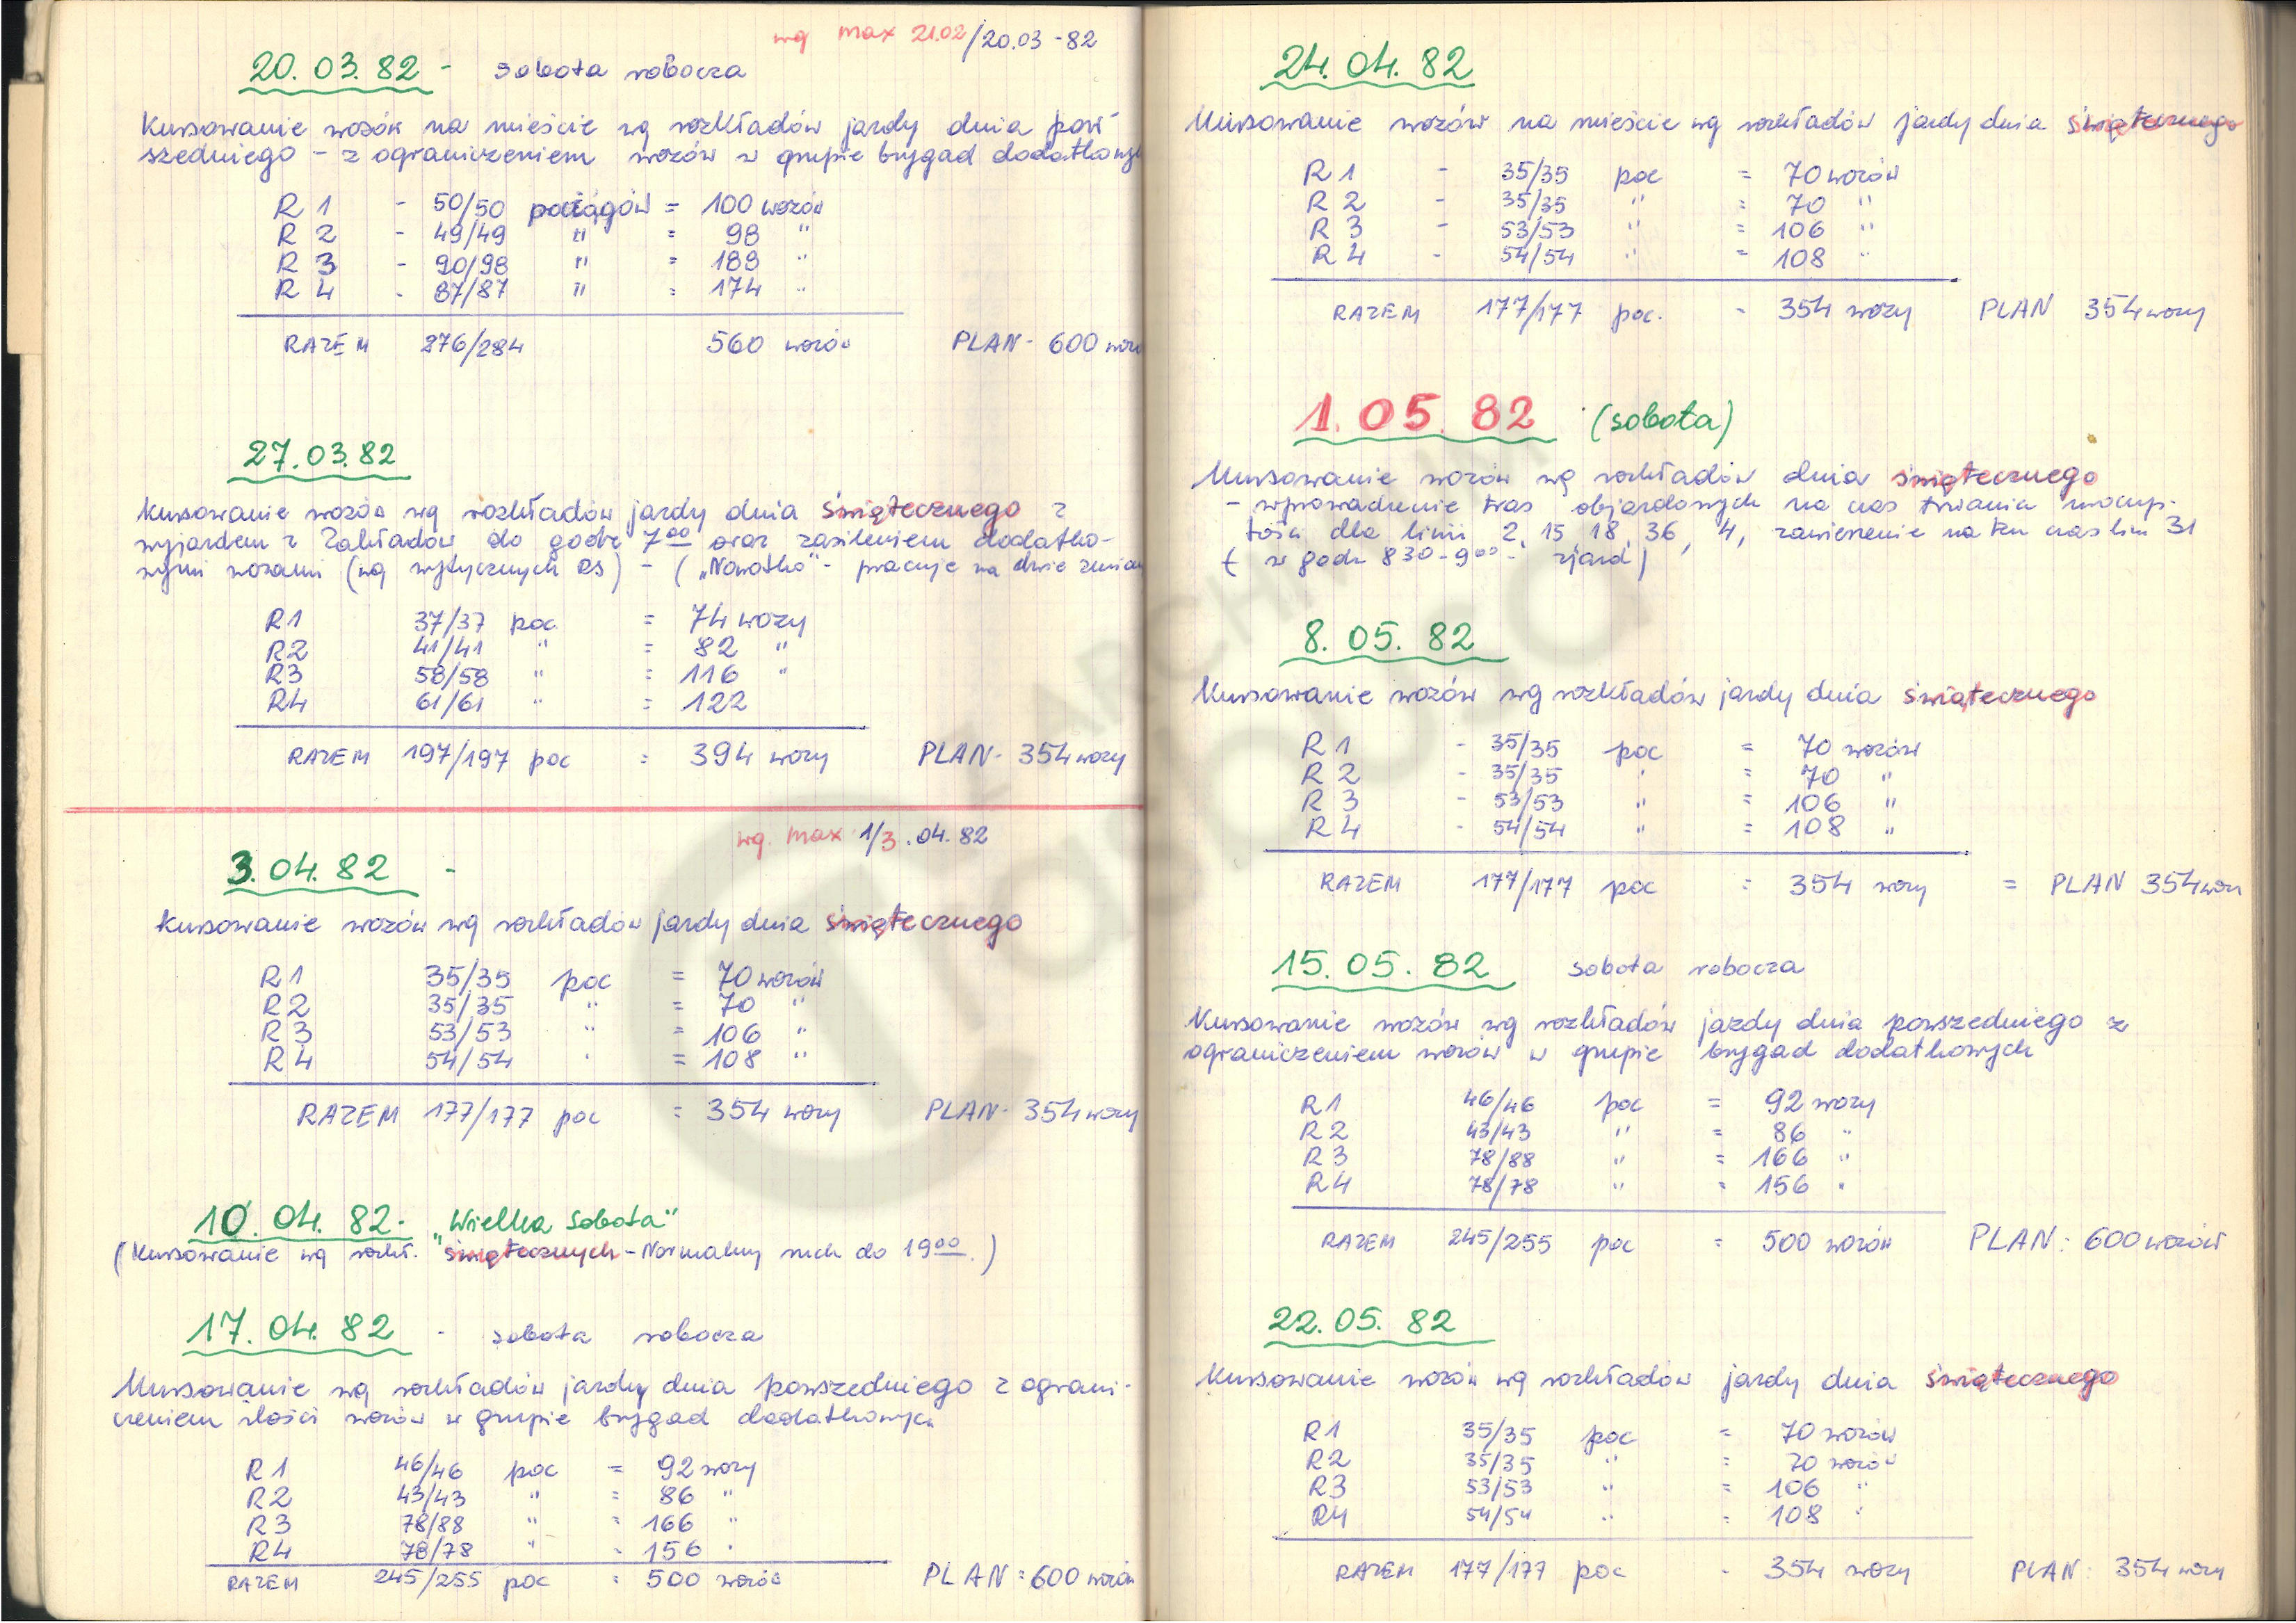 wg max 21.02/20.03-82
20.03.82 - sobota robocza
Kursowanie wozów na mieście wg rozkładów jazdy dnia pow-
szedniego - z ograniczeniem wozów w grupie brygad dodatkowych
R 1 - 50/50 pociągów = 100 wozów
R 2 - 49/49 " = 98 "
R 3 - 90/98 " = 188 "
R 4 - 87/87 " = 174 "
RAZEM 276/284 560 wozów PLAN - 600 wozów
27.03.82
Kursowanie wozów wg rozkładów jazdy dnia świątecznego z
wyjazdem z Zakładów do godz 7 00 oraz zasileniem dodatko-
wymi wozami (wg wytycznych RS) - ("Nowotko" - pracuje na dwie zmiany
R1 37/37 poc = 74 wozy
R2 41/41 " = 82 "
R3 58/58 " = 116 "
R4 61/61 " = 122
RAZEM 197/197 poc = 394 wozy PLAN - 354 wozy
wg. max 1/3.04.82
3.04.82 -
Kursowanie wozów wg rozkładów jazdy dnia świątecznego
R1 35/35 poc = 70 wozów
R2 35/35 " = 70 "
R3 53/53 " = 106 "
R4 54/54 " = 108 "
RAZEM 177/177 poc = 354 wozy PLAN - 354 wozy
10.04.82 - "Wielka Sobota"
(Kursowanie wg rozkł. świątecznych - Normalny ruch do 19 00.)
17.04.82 - sobota robocza
Kursowanie wg rozkładów jazdy dnia powszedniego z ograni-
czeniem ilości wozów w grupie brygad dodatkowych
R 1 46/46 poc = 92 wozy
R2 43/43 " = 86 "
R3 78/88 " = 166 "
R4 78/78 " = 156 "
RAZEM 245/255 poc = 500 wozów PLAN = 600 wozów
24.04.82
Kursowanie wozów na mieście wg rozkładów jazdy dnia świątecznego
R 1 - 35/35 poc = 70 wozów
R 2 - 35/35 " = 70 "
R 3 - 53/53 " = 106 "
R 4 - 54/54 " = 108 "
RAZEM 177/177 poc. - 354 wozy PLAN 354 wozy
1.05.82 (sobota)
Kursowanie wozów wg rozkładów dnia świątecznego
- wprowadzenie tras objazdowych na czas trwania uroczys-
tości dla linii 2, 15, 18, 36, 4, zawieszenie na ten czas lin 31
( w godz 8 30 - 9 00 - zjazd)
8.05.82
Kursowanie wozów wg rozkładów jazdy dnia świątecznego
R 1 - 35/35 poc = 70 wozów
R 2 - 35/35 " = 70 "
R 3 - 53/53 " = 106 "
R 4 - 54/54 " = 108 "
RAZEM 177/177 poc = 354 wozy = PLAN 354 wozy
15.05.82 sobota robocza
Kursowanie wozów wg rozkładów jazdy dnia powszedniego z
ograniczeniem wozów w grupie brygad dodatkowych
R 1 46/46 poc = 92 wozy
R 2 43/43 " = 86 "
R 3 78/88 " = 166 "
R 4 78/78 " = 156 "
RAZEM 245/255 poc = 500 wozów PLAN: 600 wozów
22.05.82
Kursowanie wozów wg rozkładów jazdy dnia świątecznego
R 1 35/35 poc = 70 wozów
R 2 35/35 " = 70 wozów
R3 53/53 " = 106 "
R4 54/54 " = 108 "
RAZEM 177/177 poc - 354 wozy PLAN: 354 wozy